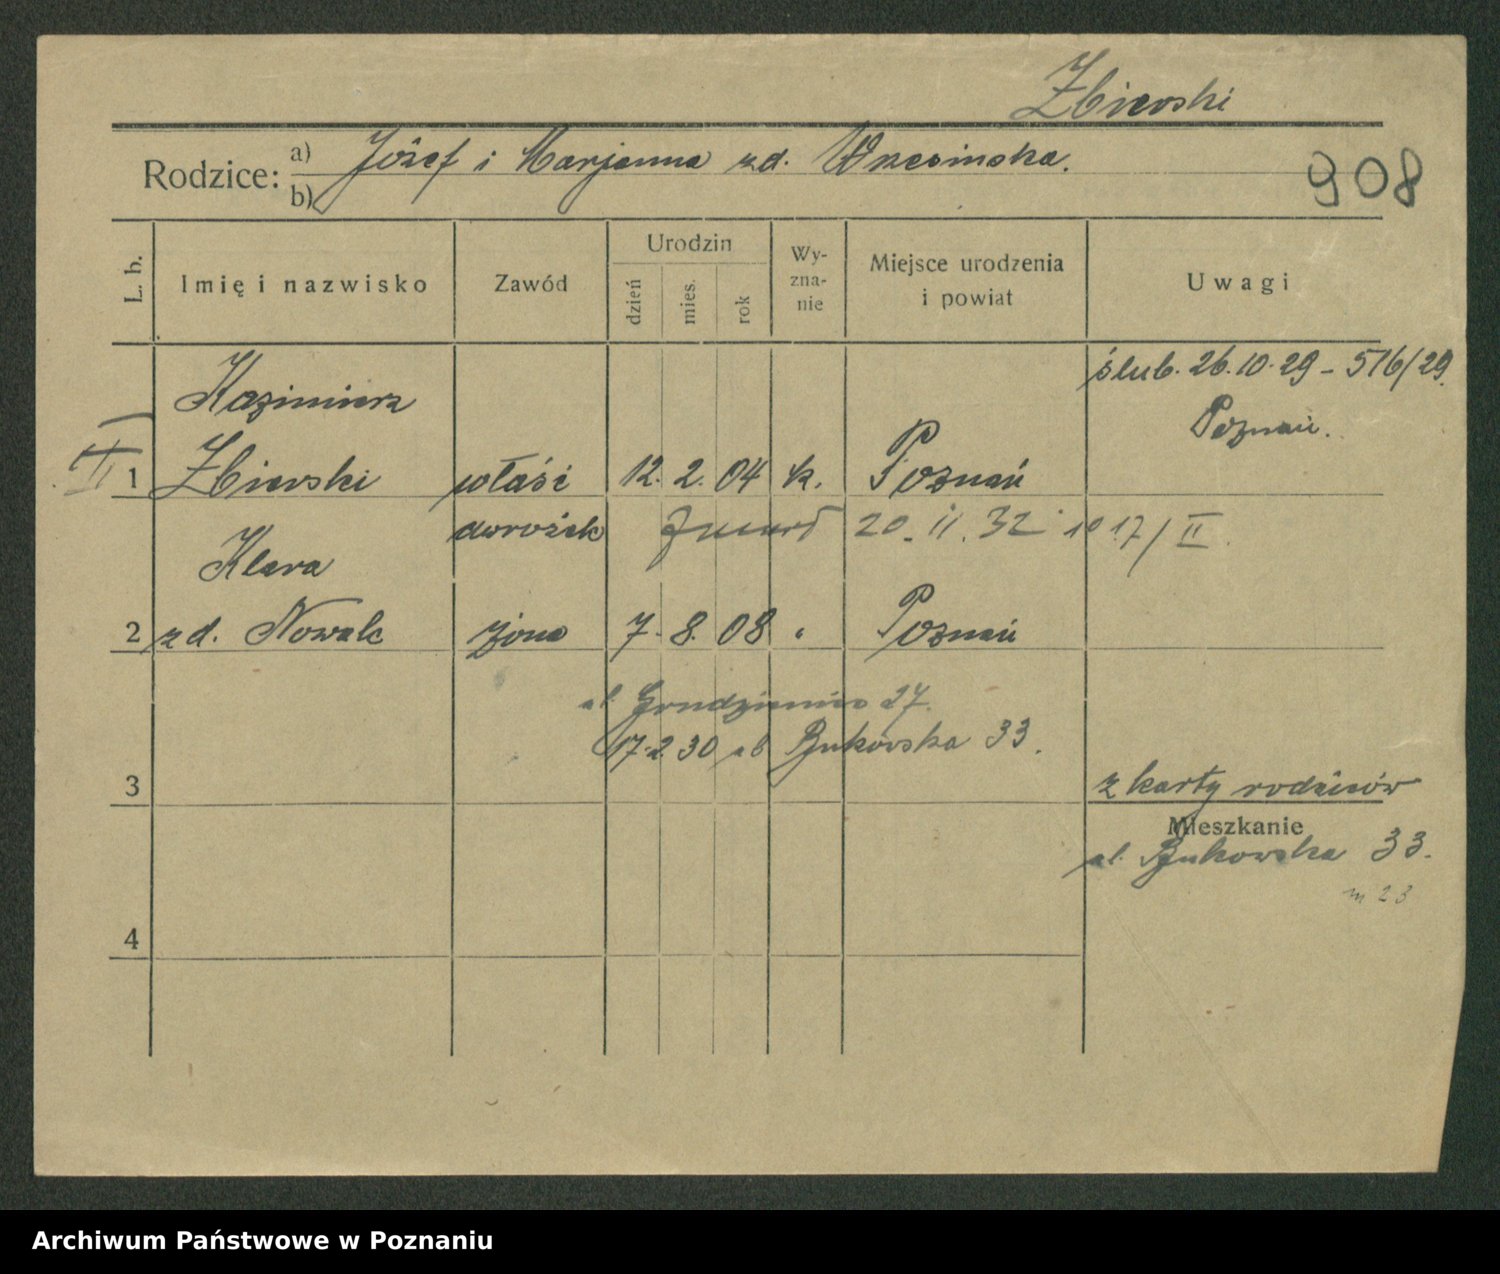 Zbierski
Rodzice: a) Józef i Marjanna zd. Wrzesińska.
b)
908
L. b.
Imię i nazwisko
Zawód
Urodzin
dzień
mies.
rok
Wy-
zna-
nie
Miejsce urodzenia
i powiat
Uwagi
ślub. 26.10.29 - 516/29.
Poznań.
Kazimierz
II 1 Zbierski właśc 12. 2. 04 k. Poznań
dorożek zmarł 20. 11. 32 1017/II.
Klara
2 zd. Nowak żona 7. 8. 08 " Poznań
ul. Grudzieniec 27.
17.2.30 ul Bukowska 33.
3
z karty rodziców
Mieszkanie
ul. Bukowska 33.
m 23
4
Archiwum Państwowe w Poznaniu